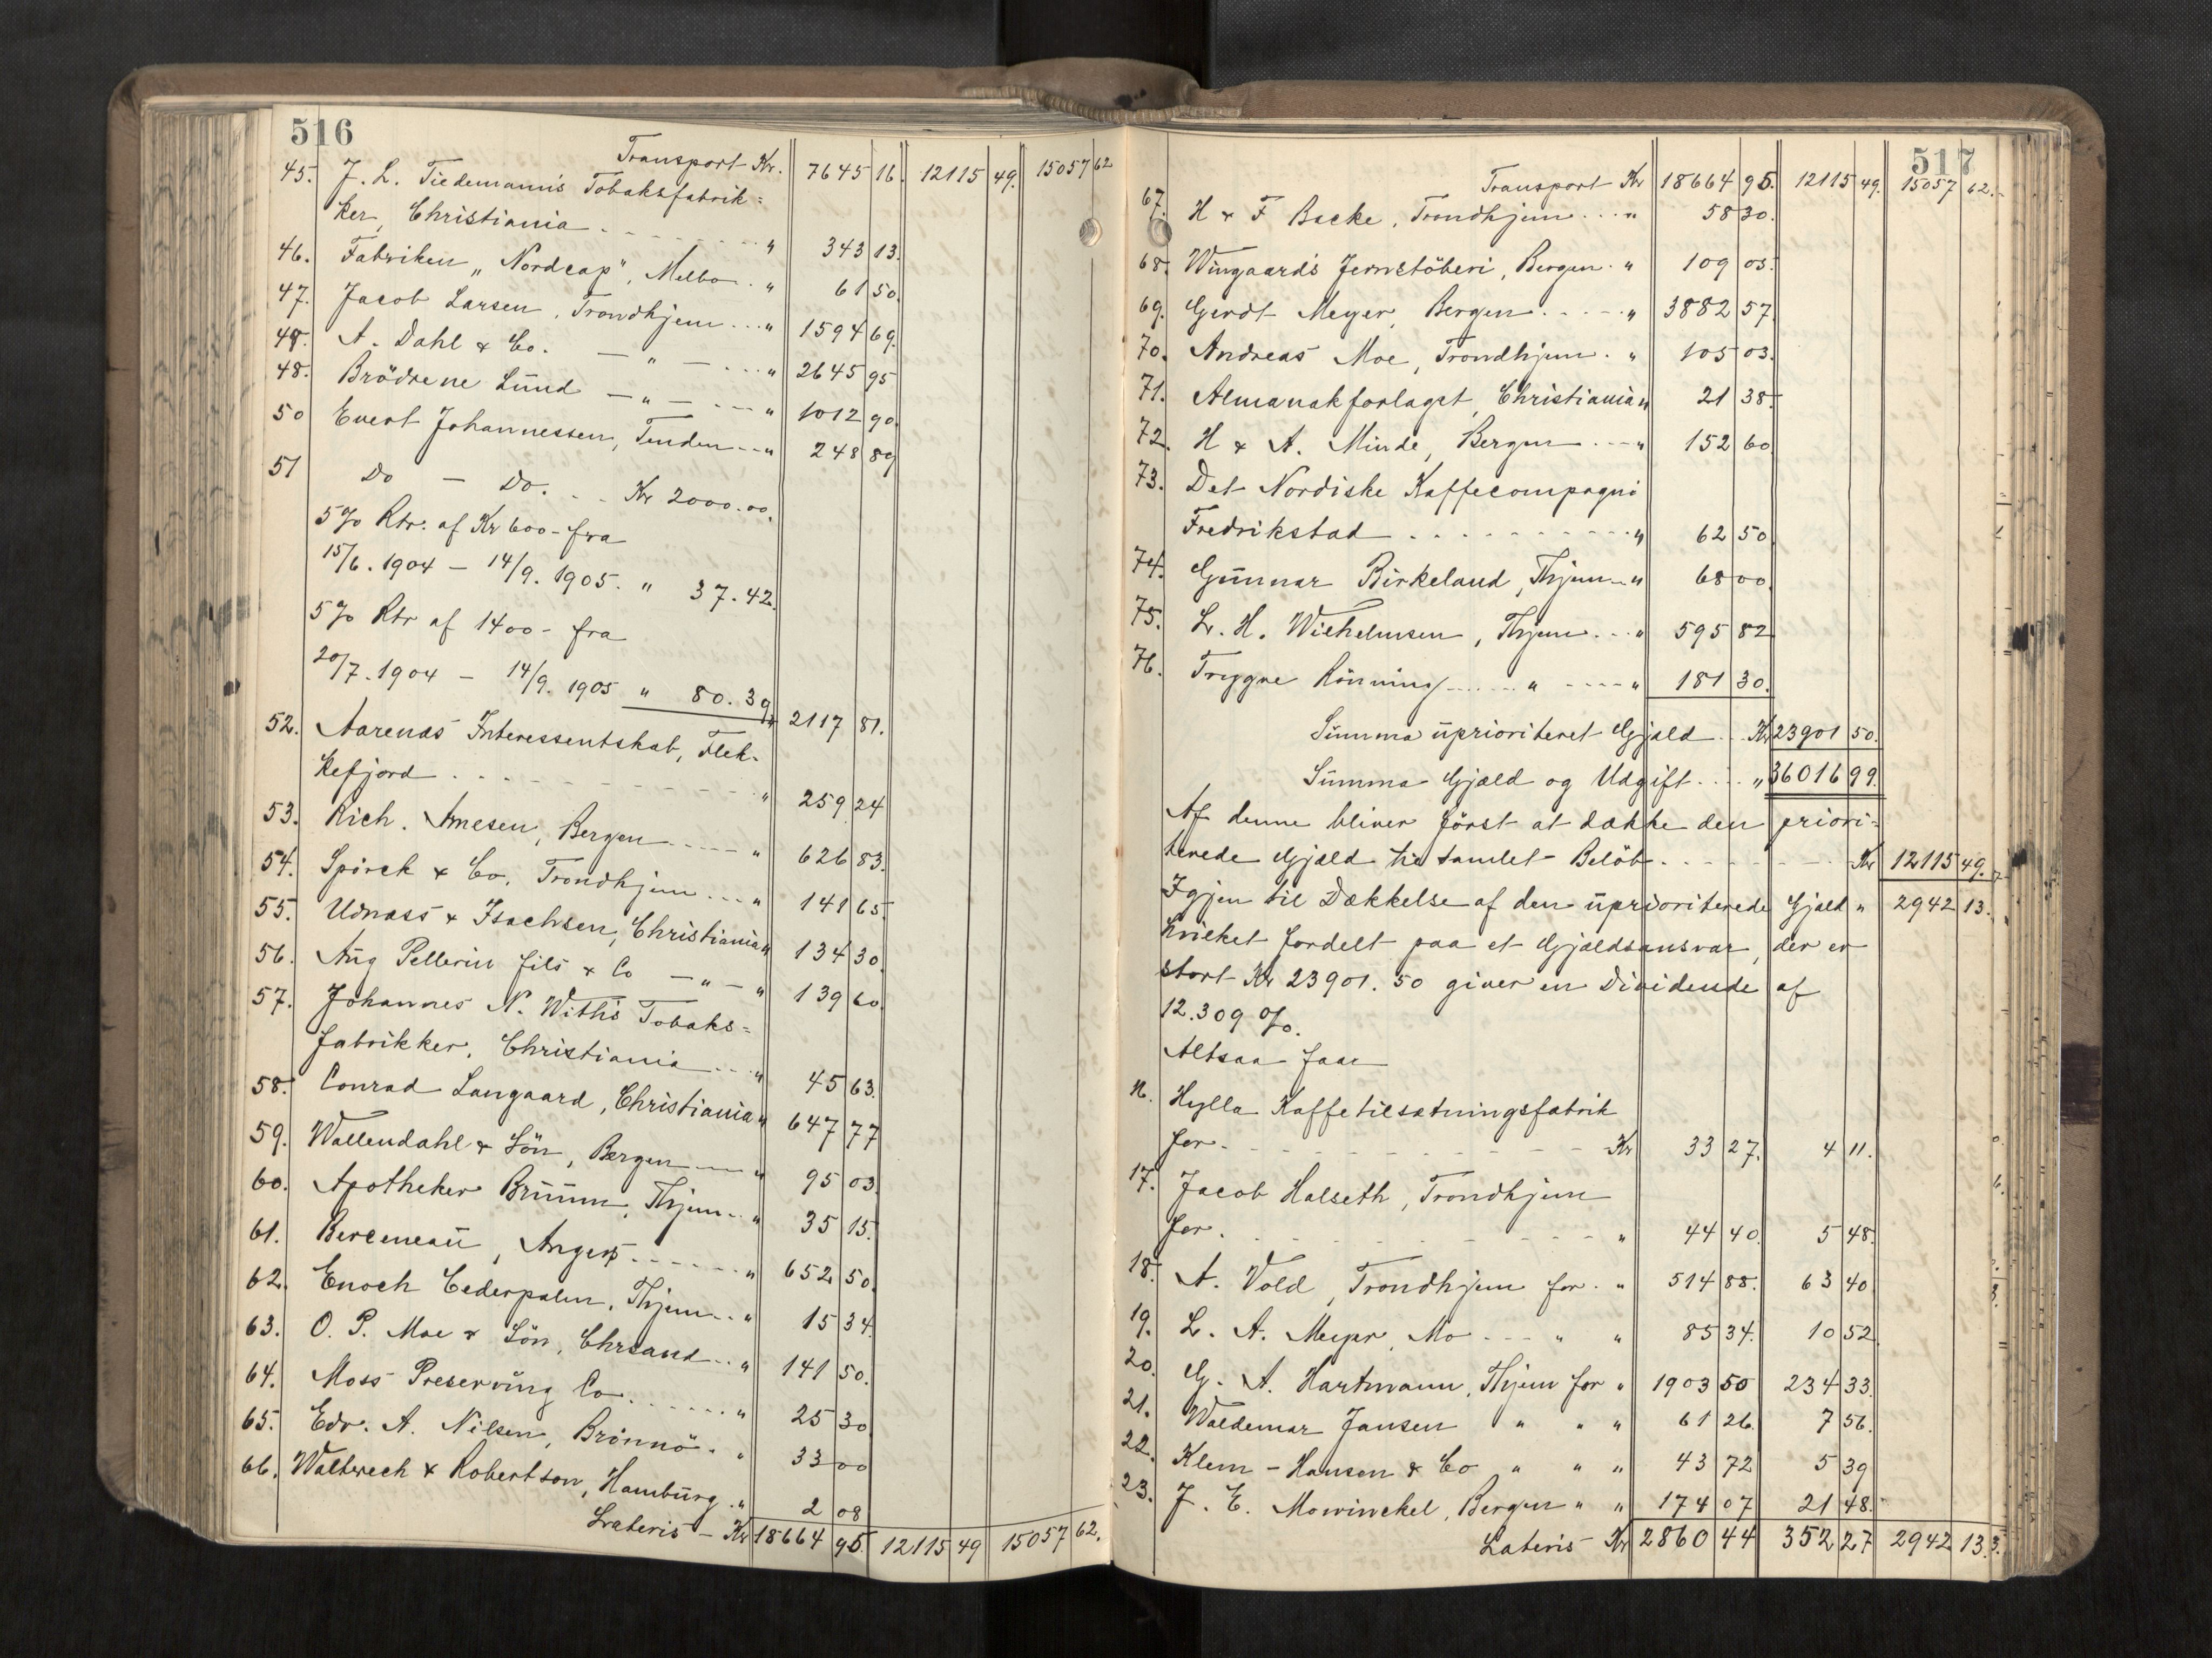 516
Transport Kr. 7645 16. 12115 49. 15057 62
45. J. L. Tiedemanns Tobaksfabrik=
ker, Christiania - - - - - - - " 343 13.
46. Fabriken "Nordcap", Melbo . " 61 50.
47. Jacob Larsen, Trondhjem ... " 1594 69.
48. A. Dahl & Co. — " — ... " 2645 95
48. Brödrene Lund — " — ... " 1012 90.
50 Evert Johannessen, Tenden ... " 248 89
51 Do — Do. . . Kr 2000.00.
5% Rtr. af Kr 600 - fra
15/6. 1904 — 14/9. 1905. " 37.42.
5% Rtr af 1400 - fra
20/7. 1904 — 14/9. 1905 " 80.39 " 2117 81.
52. Aarenæs Interessentskab, Flek-
kefjord . - - - - - - - - - " 259 24
53. Rich. Arnesen, Bergen - - - - " 626 83.
54. Spörck & Co. Trondhjem ... " 141 65.
55. Udnæss & Isachsen, Christiania " 134 30.
56. Aug Pellerin fils & Co — " — " 139 60.
57. Johannes N. Withs Tobaks=
fabrikker, Christiania ... " 45 63.
58. Conrad Langaard, Christiania " 647 77
59. Wallendahl & Sön, Bergen — " 95 03.
60. Apotheker Bruun, Thjem .. " 35 15.
61. Berceneau, Angers - - - - - " 652 50.
62. Enoch Cederpalm, Thjem .. " 15 34.
63. O. P. Moe & Sön, Chrsand .. " 141 50.
64. Moss Preserving Co. - - - - - " 25 30
65. Edv. A. Nilsen, Brönnö . " 33 00
66. Waltwech & Robertson, Hamburg . " 2 08
Lateris — Kr 18664 95 12115 49 15057 62.
517
Transport Kr 18664 95. 12115 49. 15057 62.
67. H & F Backe, Trondhjem ... " 58 30.
68. Wingaards Jernstöberi, Bergen . " 109 03.
69. Gerdt Meyer, Bergen . - - - . " 3882 57.
70. Andreas Moe, Trondhjem . " 105 03.
71. Almanakforlaget, Christiania " 21 38.
72. H & A. Minde, Bergen . - - " 152 60.
73. Det Nordiske Kaffecompagni
Fredrikstad . . - - - - - - - " 62 50.
74. Gunnar Birkeland, Thjem .. " 68 00.
75. L. H. Wilhelmsen, Thjem ... " 595 82
76. Trygve Rönning - - - - " - - - - " 181 30.
Summa uprioriteret Gjæld . . Kr 23901 50.
Summa Gjæld og Udgift . . . . " 36016 99.
Af denne bliver först at dække den priori=
terede Gjæld til samlet Belöb . - - - - - - Kr 12115 49.
Igjen til Dækkelse af den uprioriterede Gjæld " 2942 13.
hvilket fordelt paa et Gjældsansvar, der er
stort Kr 23901.50 giver en Dividende af
12.309 %.
Altsaa faar
N. Hylla Kaffetilsætningsfabrik
for - - - - - - - - - - - Kr 33 27. 4 11.
17. Jacob Halseth, Trondhjem
for . - - - - - - - - - - " 44 40. 5 48.
18. A. Vold, Trondhjem for . " 514 88. 63 40
19. L. A. Meyer, Mo - - - " " 85 34. 10 52.
20. G. A. Hartmann, Thjem for " 1903 50 234 33.
21. Waldemar Jansen " " " 61 26. 7 56.
22. Klem - Hansen & Co " " " 43 72 5 39
23. J. E. Mowinckel, Bergen " " 174 07 21 48.
Lateris Kr 2860 44 352 27 2942 13.